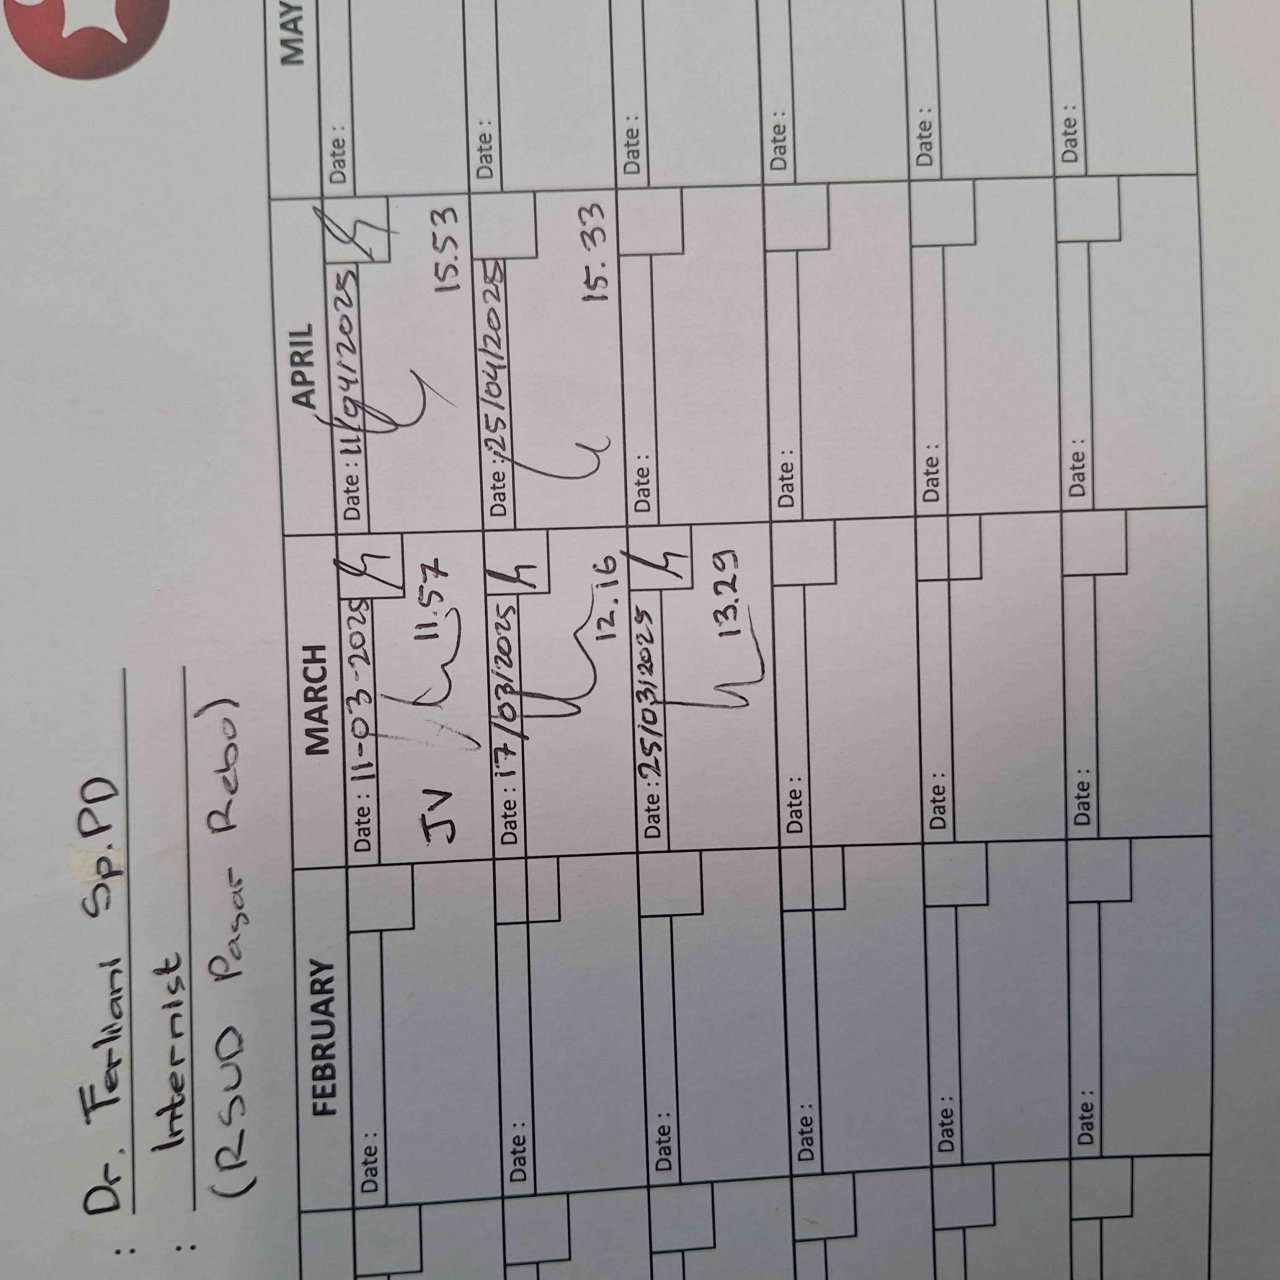 : Dr. Ferliani Sp.PD
: Internist
(RSUD Pasar Rebo)
FEBRUARY MARCH APRIL MAY
Date : Date : 11-03-2025 Date : 11/04/2025 Date :
JV 11.57 15.53
Date : Date : 17/03/2025 Date : 25/04/2025 Date :
12.16 15.33
Date : Date : 25/03/2025 Date : Date :
13.29
Date : Date : Date : Date :
Date : Date : Date : Date :
Date : Date : Date : Date :